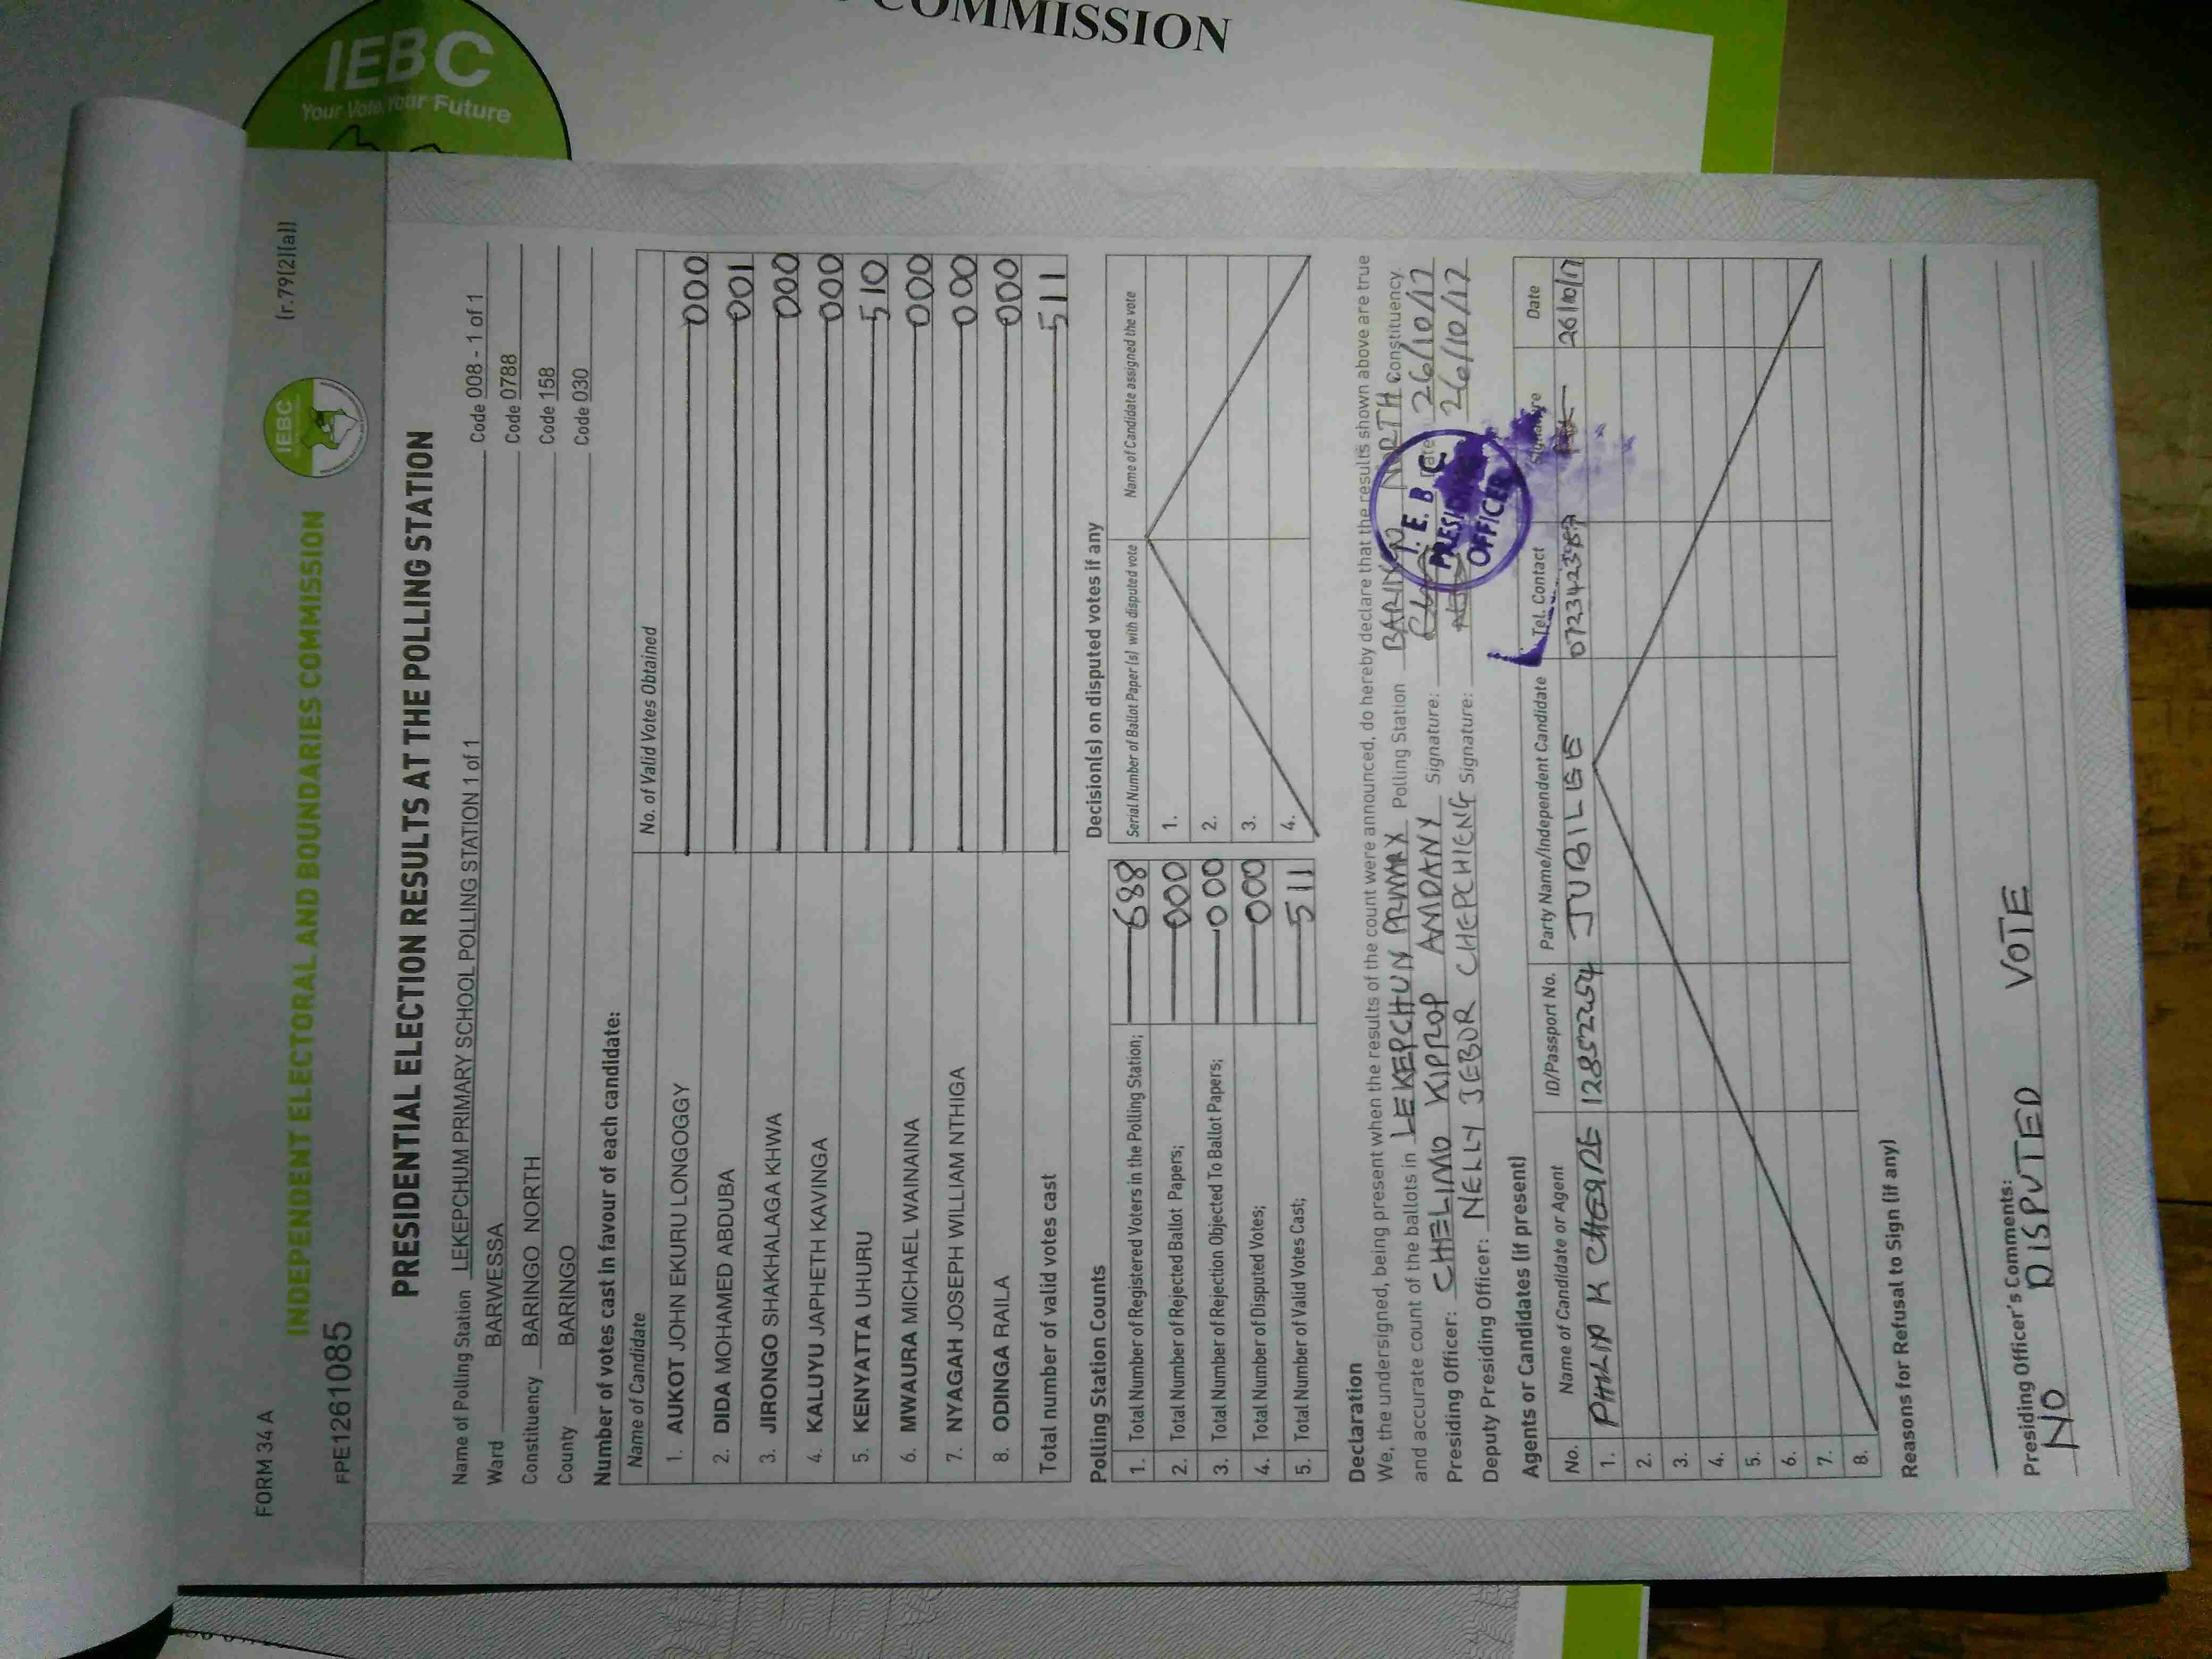 COMMISSION
IEBC
Your Vote, Your Future
FORM 34 A
(r.79(2)(a))
INDEPENDENT ELECTORAL AND BOUNDARIES COMMISSION
IEBC
FPE1261085
PRESIDENTIAL ELECTION RESULTS AT THE POLLING STATION
Name of Polling Station LEKEPCHUM PRIMARY SCHOOL POLLING STATION 1 of 1 Code 008 - 1 of 1
Ward BARWESSA Code 0788
Constituency BARINGO NORTH Code 158
County BARINGO Code 030
Number of votes cast in favour of each candidate:
Name of Candidate No. of Valid Votes Obtained
1. AUKOT JOHN EKURU LONGOGGY 000
2. DIDA MOHAMED ABDUBA 001
3. JIRONGO SHAKHALAGA KHWA 000
4. KALUYU JAPHETH KAVINGA 000
5. KENYATTA UHURU 510
6. MWAURA MICHAEL WAINAINA 000
7. NYAGAH JOSEPH WILLIAM NTHIGA 000
8. ODINGA RAILA 000
Total number of valid votes cast 511
Polling Station Counts
1. Total Number of Registered Voters in the Polling Station; 688
2. Total Number of Rejected Ballot Papers; 000
3. Total Number of Rejection Objected To Ballot Papers; 000
4. Total Number of Disputed Votes; 000
5. Total Number of Valid Votes Cast; 511
Decision(s) on disputed votes if any
Serial Number of Ballot Paper (s) with disputed vote Name of Candidate assigned the vote
1.
2.
3.
4.
Declaration
We, the undersigned, being present when the results of the count were announced, do hereby declare that the results shown above are true
and accurate count of the ballots in LEKEPCHUN PRIMARY Polling Station BARINGO NORTH Constituency.
Presiding Officer: CHELIMO KIPROP AMDANY Signature: Date: 26/10/17
Deputy Presiding Officer: NELLY JEBOR CHEPCHIENG Signature: 26/10/17
I.E.B.C
PRESIDING
OFFICER
Agents or Candidates (if present)
No. Name of Candidate or Agent ID/Passport No. Party Name/Independent Candidate Tel. Contact Signature Date
1. PHILIP K 12852254 JUBILEE 26/10/17
2.
3.
4.
5.
6.
7.
8.
Reasons for Refusal to Sign (if any)
Presiding Officer's Comments:
NO DISPUTED VOTE